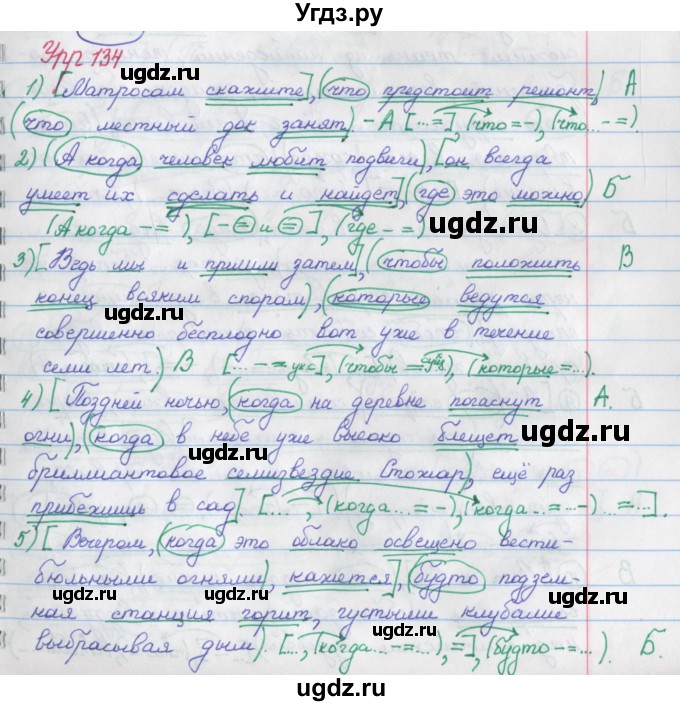 Угдз.ру
Упр 134
1) [Матросам скажите], (что предстоит ремонт) А
(что местный док занят). - А [...=], (что = -), (что ... - =).
2) (А когда человек любит подвиги), [он всегда
умеет их сделать и найдет], (где это можно) Б
(А когда - = ), [ - = и = ], (где - = )
3) [Ведь мы и пришли затем], (чтобы положить В
конец всяким спорам), (которые ведутся
совершенно бесплодно вот уже в течение
семи лет.) В [... - = ук.с], (чтобы = сущ), (которые = ...).
4) [Поздней ночью, (когда на деревне погаснут А.
огни), (когда в небе уже высоко блещет
бриллиантовое семизвездие Стожар), ещё раз
прибежишь в сад]. [..., (когда ... = -), (когда ... = ... -) .. = ...].
5) [Вечером, (когда это облако освещено вести-
бюльными огнями), кажется], (будто подзем-
ная станция горит, густыми клубами
выбрасывая дым). [..., (когда ... - = ...), =], (будто - = ...). Б.
ugdz.ru
ugdz.ru
ugdz.ru
ugdz.ru
ugdz.ru
ugdz.ru
ugdz.ru
ugdz.ru
ugdz.ru
ugdz.ru
ugdz.ru
ugdz.ru
ugdz.ru
ugdz.ru